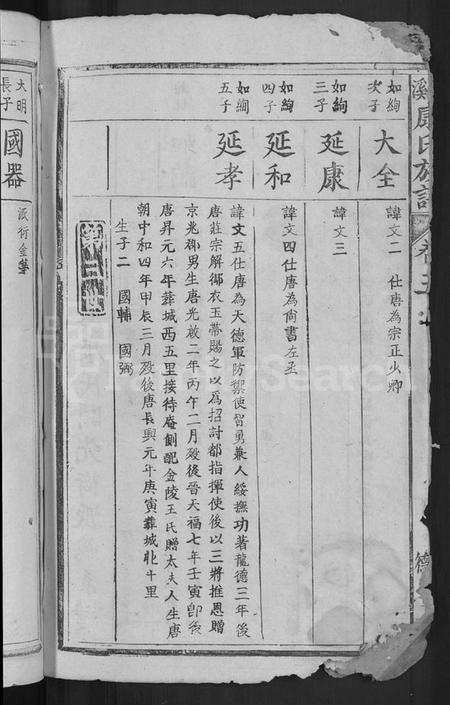 溪康氏族譜 卷三
如絢次子
大全
諱文二 仕唐為宗正少卿
如絢三子
延康
諱文三
如絢四子
延和
諱文四仕唐為尚書左丞
如絢五子
延孝
諱文五仕唐為天德軍防禦使智勇兼人綏撫功著龍德三年後
唐莊宗解御衣玉帶賜之以為招討都指揮使後以三將推恩贈
京兆郡男生唐光啟二年丙午二月歿後晉天福七年壬寅即後
唐昇元六年葬城西五里接待庵側配金陵王氏贈太夫人生唐
朝中和四年甲辰三月歿後唐長興元年庚寅葬城北十里
生子二 國輔 國弼
第三世
大明長子
國器
派衍金華
FamilySearch